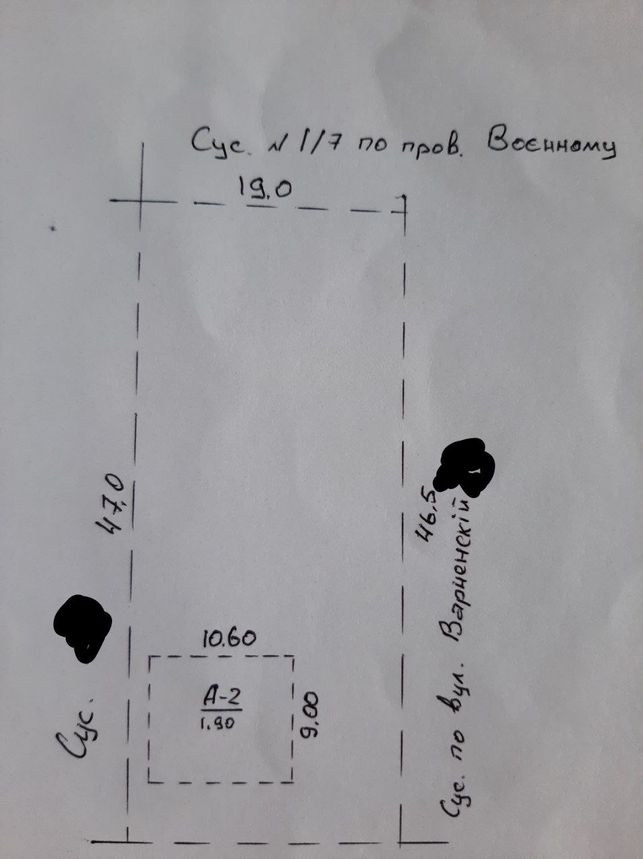 Сус. N 1/7 по пров. Воєнному
19.0
47.0
46.5
Сус. по вул. Варненскій
Сус.
10.60
А-2
1.90
9.00